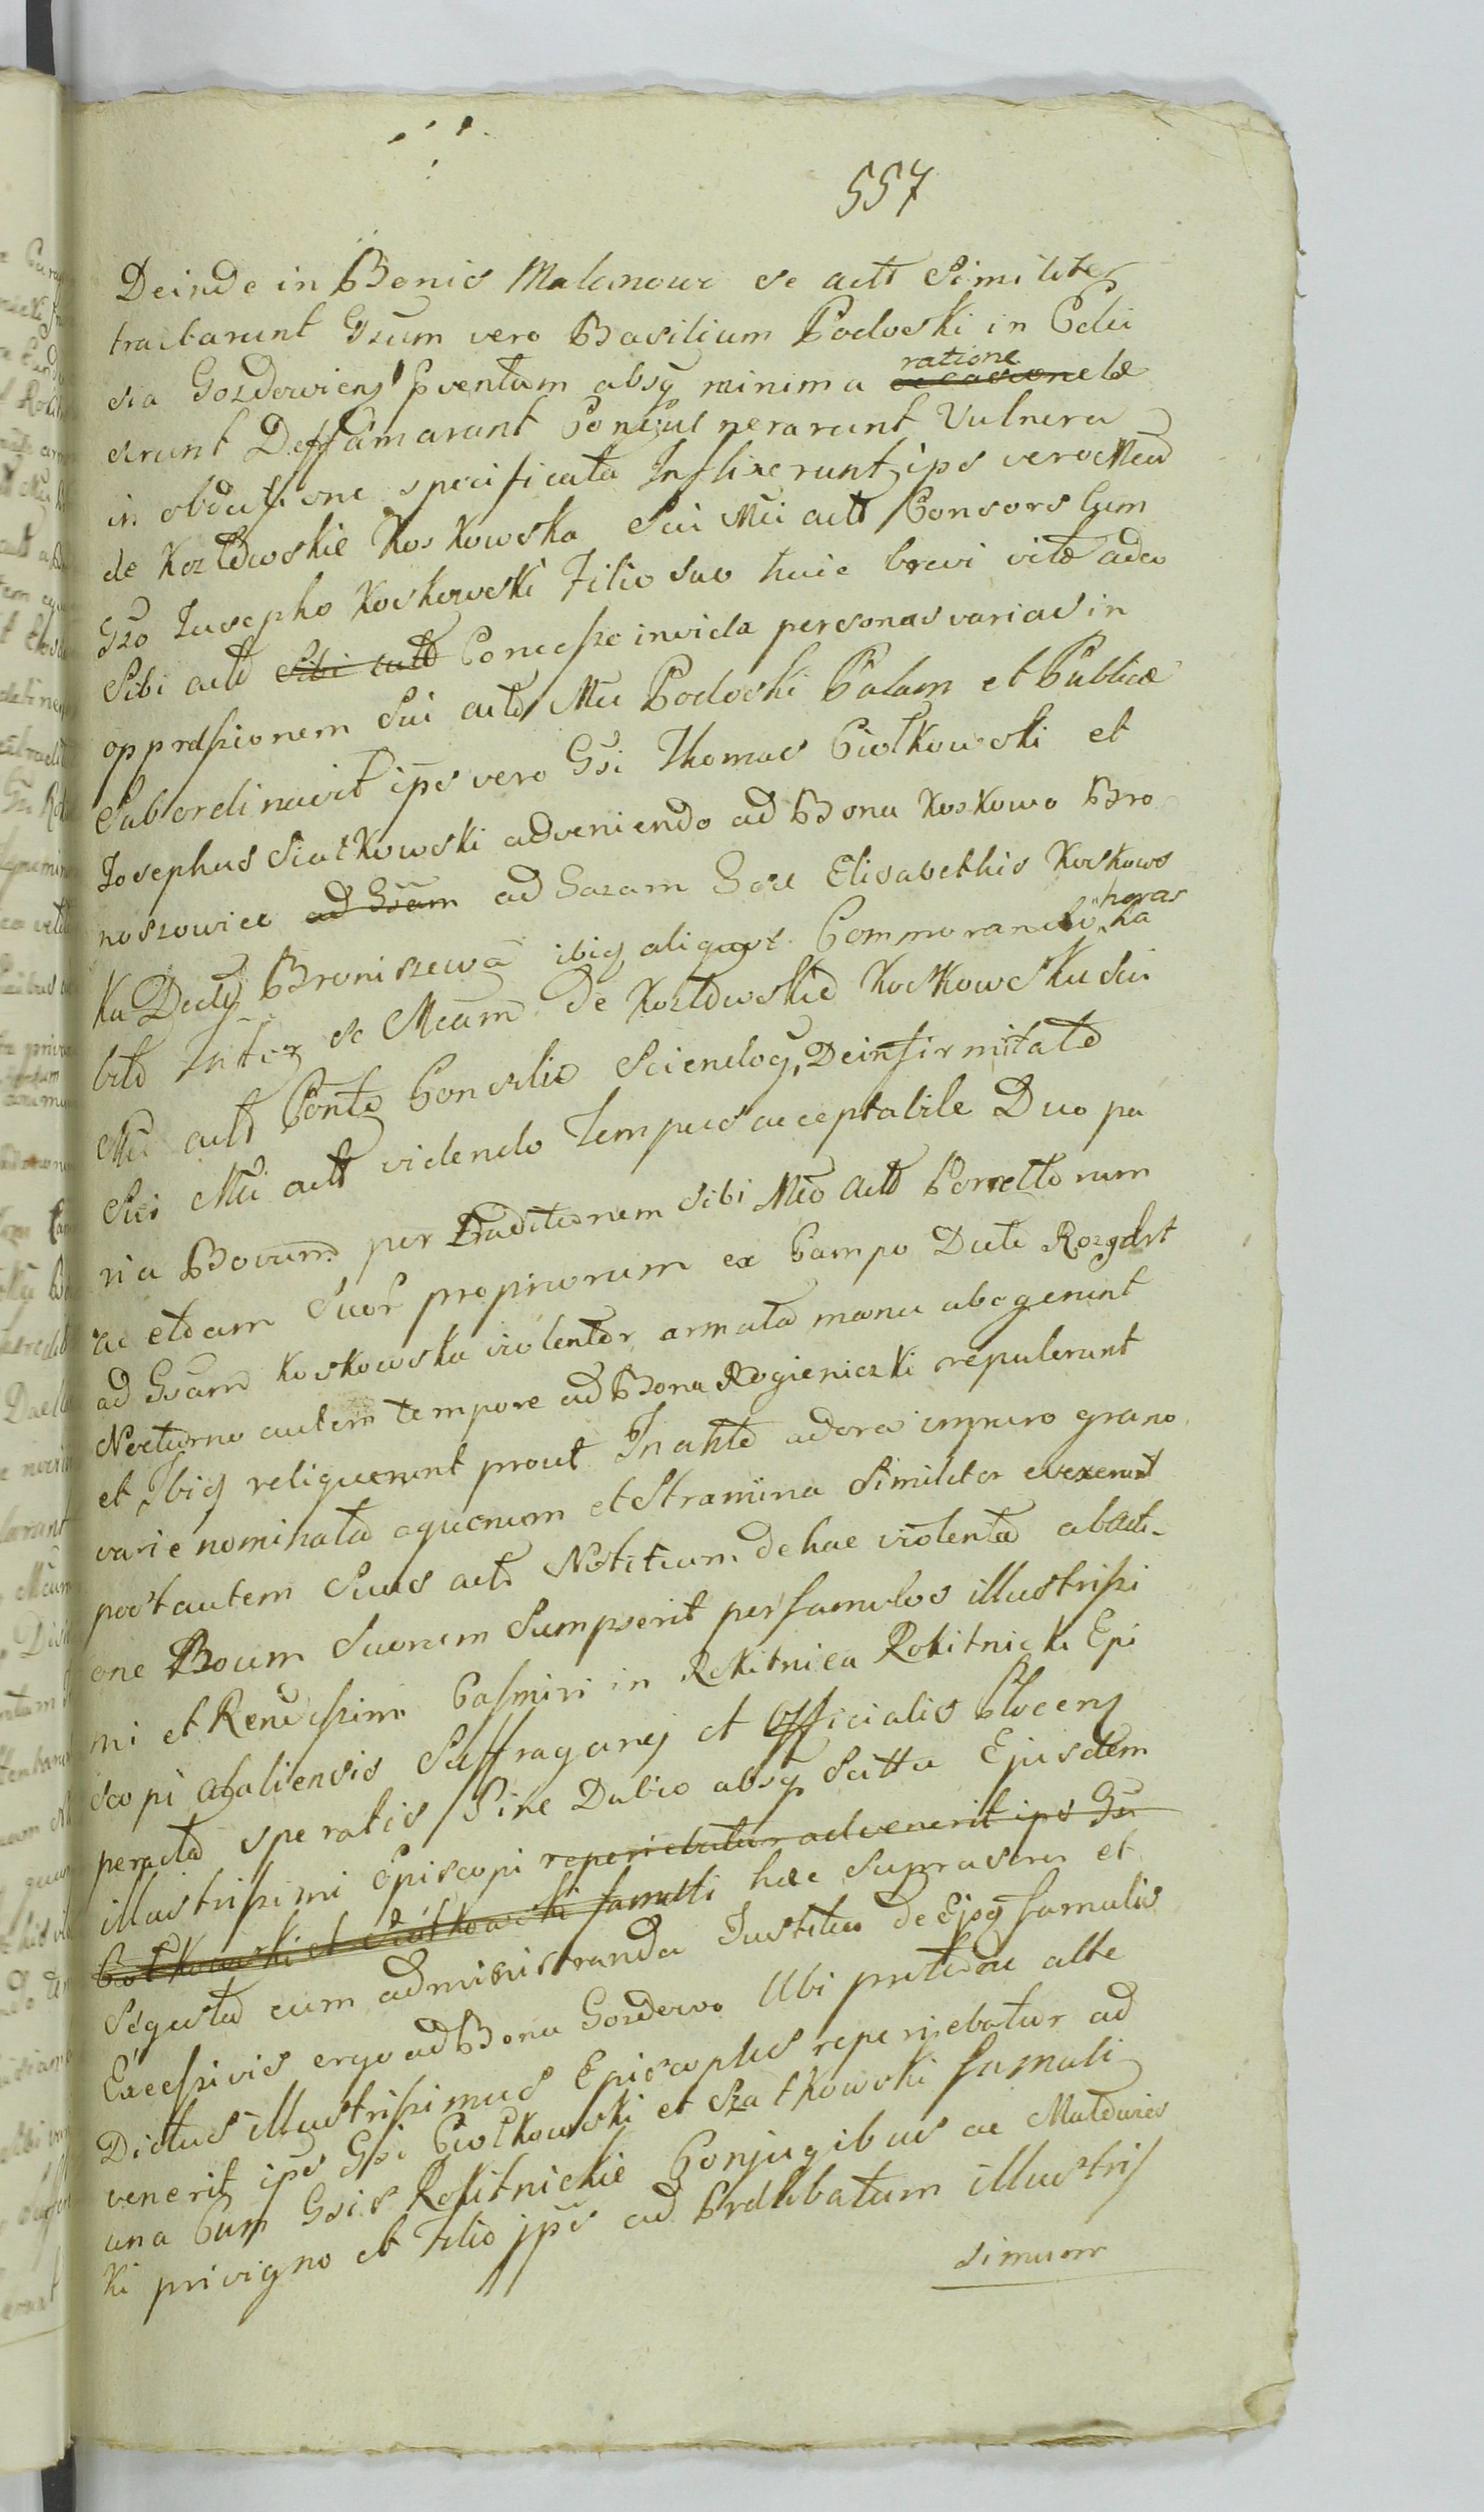 557
Deinde in Bonis Malanowo se actt Similiter
tractarunt Gsum vero Basilium Podoski in Eccle
sia Gozdoviens Pventum absq minima ratione occasione læ
serunt Deffamarunt Convulnerarunt Vulnera
in obductione specificata Inflixerunt, ips vero Mca
de Kozłowskie Koskowska Sui Mci actt Consors Cum
Gso Iosepho Koskowski Filio suo huic brevi vitæ adeo
Sibi actt Sibi actt Concesse invida personas varias in
oppressionem Sui actt Mci Podoski Palam et Publice
Subordinavit ips vero Gsi Thomas Ciołkowski et
Iosephus Siatkowski adveniendo ad Bona Koskowo Bro
noszowice ad Gsam ad Gazam Gsæ Elisabethis Koskows
Ka Dictq Broniszewa ibiq aliquot Commorando horas ha
bito Inter se Mcam De Kozłowskie Koskowska Sui
Mci actt Conto Consilio Sciendoq, De infirmitate
Sui Mci actt videndo Tempus acceptabile Duo pa
ria Bovum per Traditionem sibi Mco actt
ac etiam Suor propriorum ex Campo Dicto
ad Gsam Koskowska violenter armata manu abegerunt
Nocturno autem tempore ad Bona Rogieniczki repulerunt
et Ibiq reliquerunt prout
varie nominata et Stramina Similiter evexerunt
post autem Suus actt Notitiam de hac violenta abacti-
one Boum Suorum Sumpserit per famulos illustrissi
mi et Rendissimi Casimiri in Rokitnica Rokitnicki Epi
scopi Suffraganej et Officialis Plocens
peracta speratis Sine Dubio absq Scitta Ejusdem
illustrissimi Episcopi reperiebatur advenerit ips Gsi
Ciołkowski et Siatkowski famuli hæc suprascra et
Sequsta cum administranda Iustitia de Ejsq famulis
Excessivis ergo ad Bona Gozdowo Ubi ptunc atte
Dictus illustrissimus Episcophus reperijebatur ad
venerit ips Gsi Ciołkowski et Szatkowski famuli
una Cum Gsis Rokitnickie Conjugibus ac
ki privigno et Filio jps ad Prælibatum illustris
simum